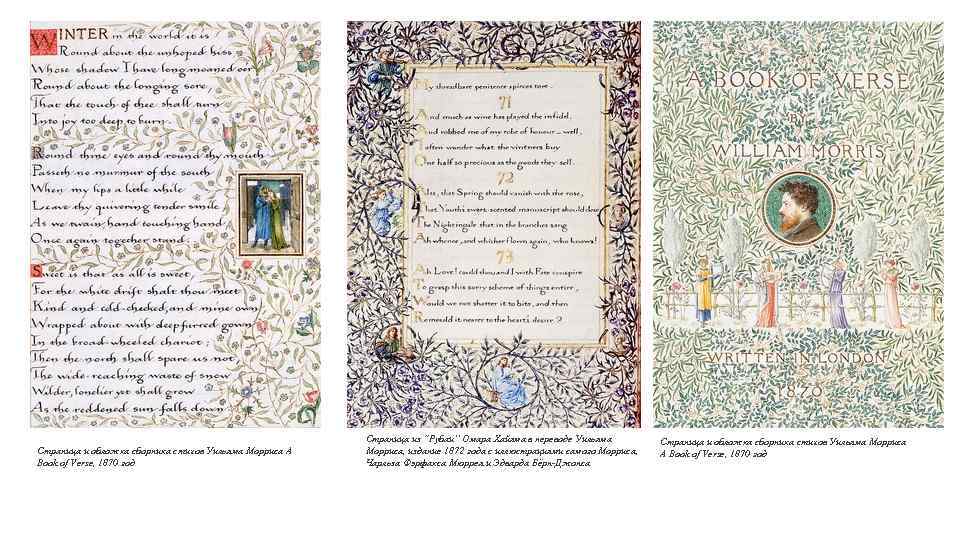 WINTER in the world it is
Round about the unhoped kiss
Whose shadow I have long moaned o'er
Round about the longing sore,
That the touch of thee shall turn
Into joy too deep to burn.
Round thine eyes and round thy mouth
Passeth no murmur of the south
When my lips a little while
Leave thy quivering tender smile,
As we twain hand touching hand,
Once again together stand.
Sweet is that as all is sweet,
For the white drift shalt thou meet
Kind and cold-cheeked, and mine own
Wrapped about with deep furred gown
In the broad wheeled chariot;
Then the north shall spare us not,
The wide-reaching waste of snow
Wilder, lonelier yet shall grow
As the reddened sun falls down
Страница и обложка сборника стихов Уильяма Морриса A
Book of Verse, 1870 год
My threadbare penitence apieces tore.
71
And much as wine has played the infidel,
And robbed me of my robe of honour — well,
I often wonder what the vintners buy
One half so precious as the goods they sell.
72
Alas, that Spring should vanish with the rose,
That Youth's sweet-scented manuscript should close
The Nightingale that in the branches sang
Ah whence, and whither flown again, who knows!
73
Ah Love! could thou and I with Fate conspire
To grasp this sorry scheme of things entire,
Would we not shatter it to bits, and then
Remould it nearer to the heart's desire?
Страница из "Рубаи" Омара Хайама в переводе Уильяма
Морриса, издание 1872 года с иллюстрациями самого Морриса,
Чарльза Фэрфакса Мюррея и Эдварда Бёрн-Джонса
A BOOK OF VERSE
By
WILLIAM MORRIS
WRITTEN IN LONDON
1870
Страница и обложка сборника стихов Уильяма Морриса
A Book of Verse, 1870 год